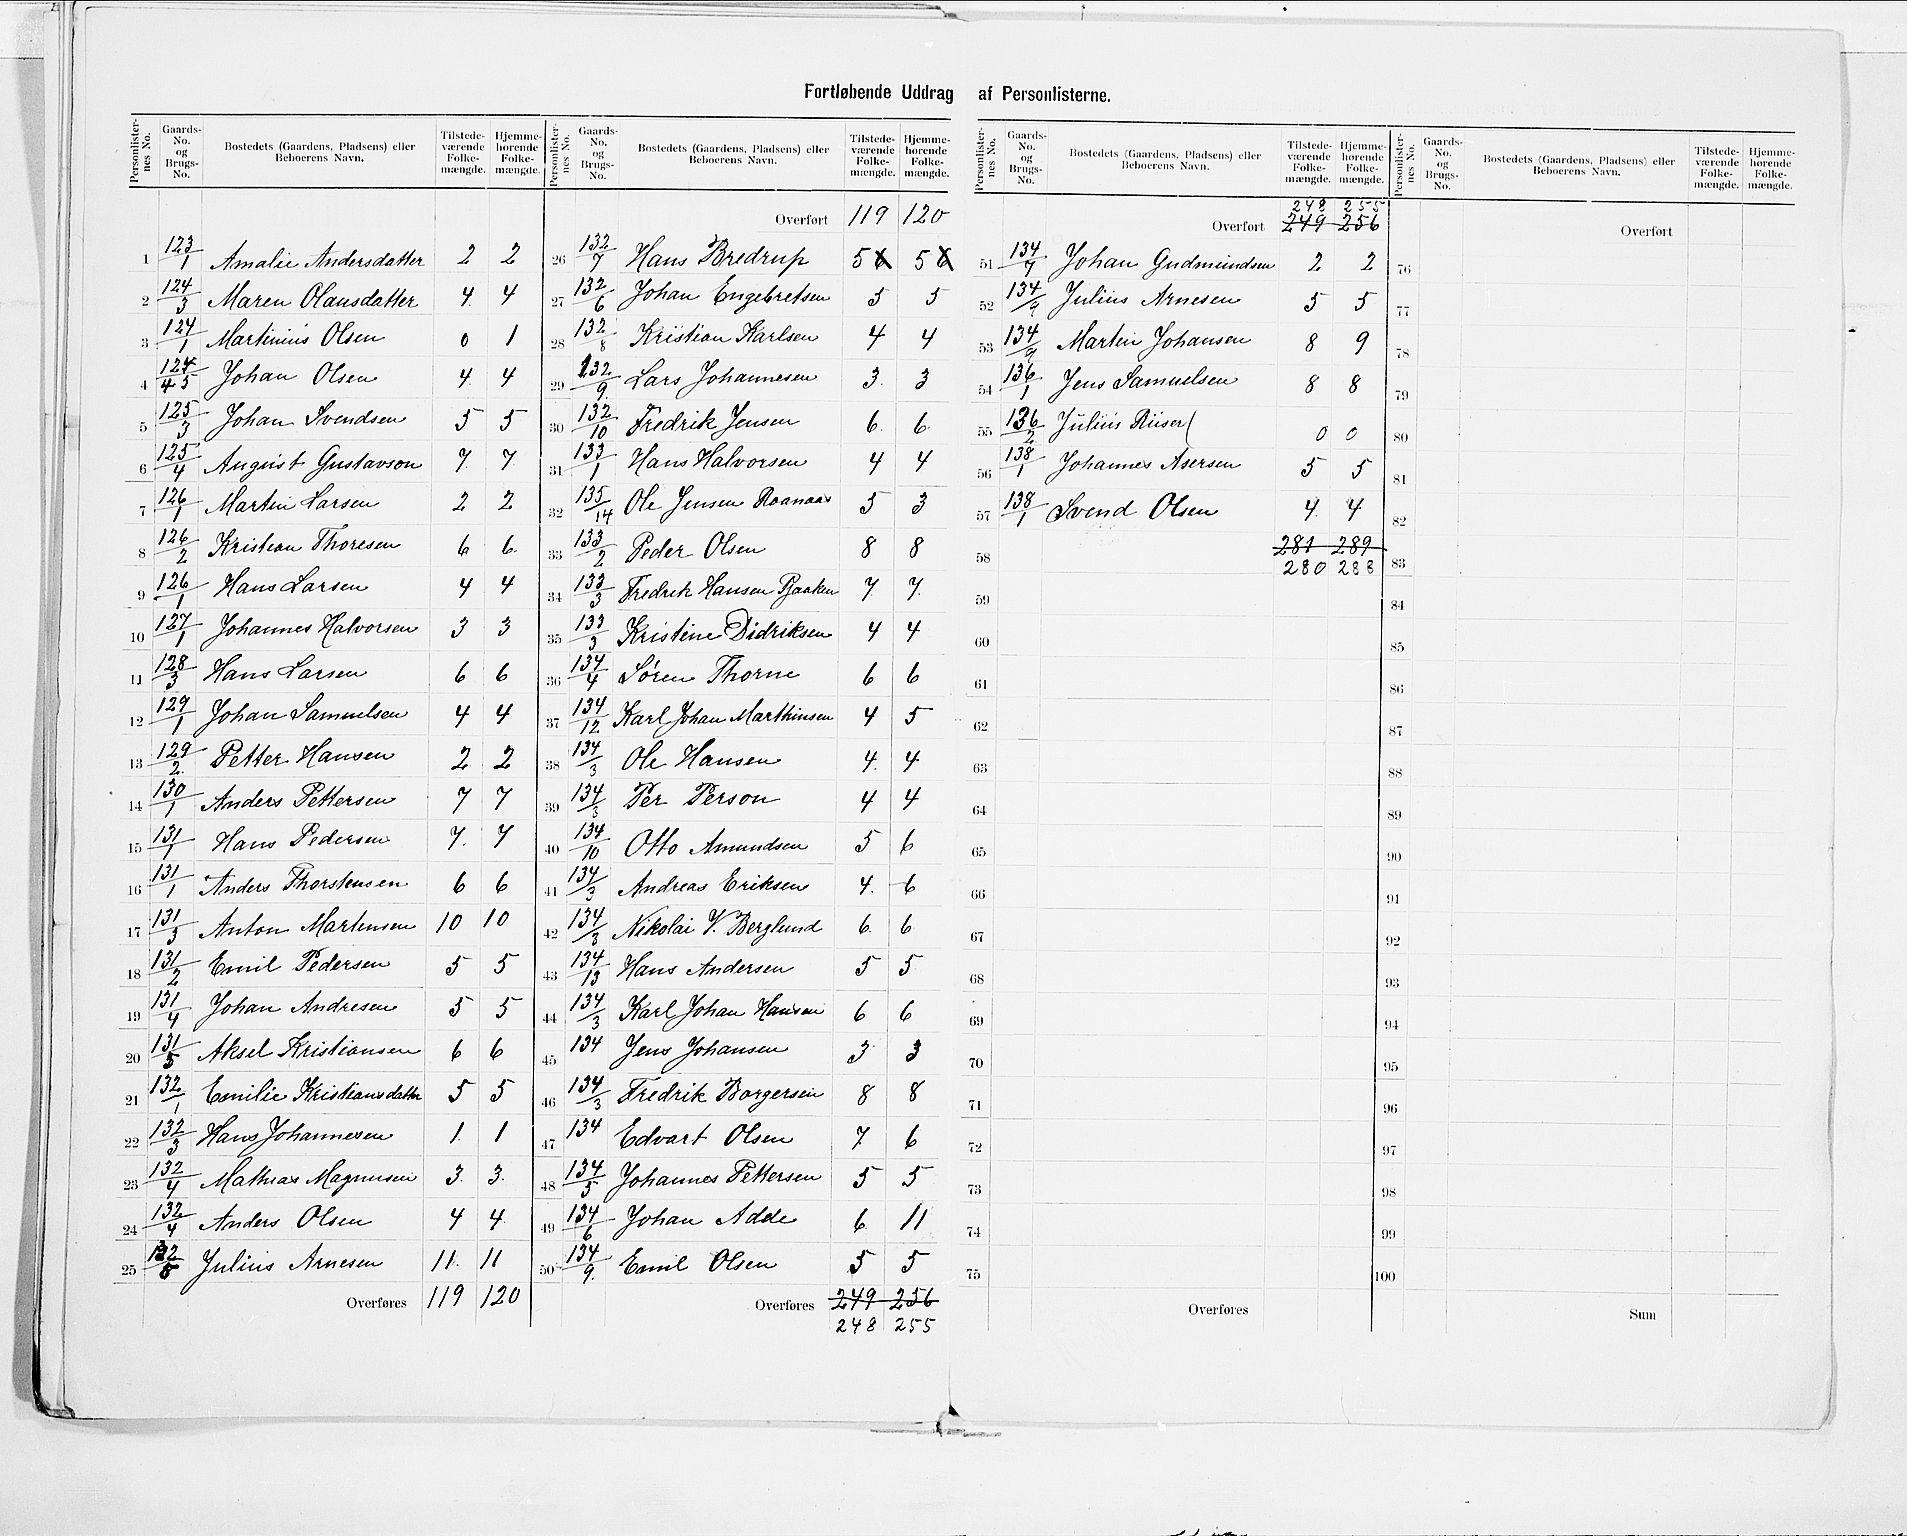 Fortløbende Uddrag af Personlisterne.
Personlisternes No. Gaards-No. og Brugs-No. Bostedets (Gaardens, Pladsens) eller Beboerens Navn. Tilstedeværende Folkemængde. Hjemmehørende Folkemængde.
1 123/1 Amalie Andersdatter 2 2
2 124/3 Maren Olausdatter 4 4
3 124/1 Martinius Olsen 0 1
4 124/45 Johan Olsen 4 4
5 125/3 Johan Svendsen 5 5
6 125/4 August Gustavson 7 7
7 126/1 Martin Larsen 2 2
8 126/2 Kristian Thoresen 6 6
9 126/1 Hans Larsen 4 4
10 127/1 Johannes Halvorsen 3 3
11 128/3 Hans Larsen 6 6
12 129/1 Johan Samuelsen 4 4
13 129/2 Petter Hansen 2 2
14 130/1 Anders Pettersen 7 7
15 131/1 Hans Pedersen 7 7
16 131/1 Anders Thorstensen 6 6
17 131/3 Anton Martensen 10 10
18 131/2 Emil Pedersen 5 5
19 131/4 Johan Andresen 5 5
20 131/5 Aksel Kristiansen 6 6
21 132/1 Emilie Kristiansdatter 5 5
22 132/3 Hans Johannesen 1 1
23 132/4 Mathias Magnusen 3 3
24 132/4 Anders Olsen 4 4
25 132/5 Julius Arnesen 11 11
Overføres 119 120
Personlisternes No. Gaards-No. og Brugs-No. Bostedets (Gaardens, Pladsens) eller Beboerens Navn. Tilstedeværende Folkemængde. Hjemmehørende Folkemængde.
Overført 119 120
26 132/7 Hans Bredrup 5 6 5 6
27 132/6 Johan Engebretsen 5 5
28 132/8 Kristian Karlsen 4 4
29 132/9 Lars Johannesen 3 3
30 132/10 Fredrik Jensen 6 6
31 133/1 Hans Halvorsen 4 4
32 135/14 Ole Jensen Raanaas 5 3
33 133/2 Peder Olsen 8 8
34 133/3 Fredrik Hansen 7 7
35 133/3 Kristine Didriksen 4 4
36 134/4 Sören Thorne 6 6
37 134/12 Karl Johan Marthinsen 4 5
38 134/3 Ole Hansen 4 4
39 134/3 Per Person 4 4
40 134/10 Otto Amundsen 5 6
41 134/3 Andreas Eriksen 4 6
42 134/3 Nikolai V. Berglund 6 6
43 134/13 Hans Andersen 5 5
44 134/3 Karl Johan Hansen 6 6
45 134 Jens Johansen 3 3
46 134/3 Fredrik Borgersen 8 8
47 134 Edvart Olsen 7 6
48 134/5 Johannes Pettersen 5 5
49 134/6 Johan Adde 6 11
50 134/9 Emil Olsen 5 5
Overføres 249 256
248 255
Personlisternes No. Gaards-No. og Brugs-No. Bostedets (Gaardens, Pladsens) eller Beboerens Navn. Tilstedeværende Folkemængde. Hjemmehørende Folkemængde.
248 255
Overført 249 256
51 134/7 Johan Gudmundsen 2 2
52 134/9 Julius Arnesen 5 5
53 134/9 Martin Johansen 8 9
54 136/1 Jens Samuelsen 8 8
55 136/2 Julius Riiser 0 0
56 138/1 Johannes Asersen 5 5
57 138/1 Svend Olsen 4 4
58 281 289
280 288
59
60
61
62
63
64
65
66
67
68
69
70
71
72
73
74
75
Overføres
Personlisternes No. Gaards-No. og Brugs-No. Bostedets (Gaardens, Pladsens) eller Beboerens Navn. Tilstedeværende Folkemængde. Hjemmehørende Folkemængde.
Overført
76
77
78
79
80
81
82
83
84
85
86
87
88
89
90
91
92
93
94
95
96
97
98
99
100
Sum